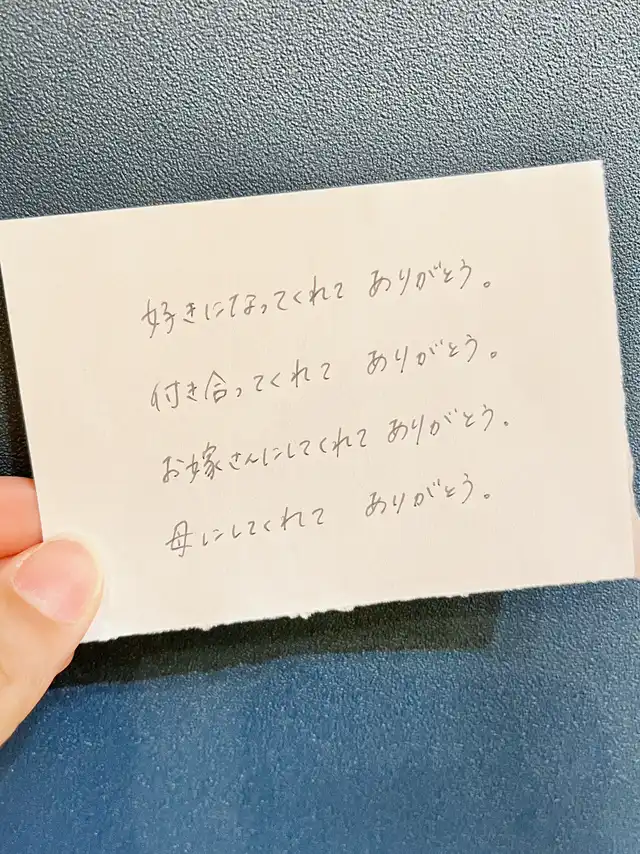 好きになってくれて ありがとう。
付き合ってくれて ありがとう。
お嫁さんにしてくれて ありがとう。
母にしてくれて ありがとう。